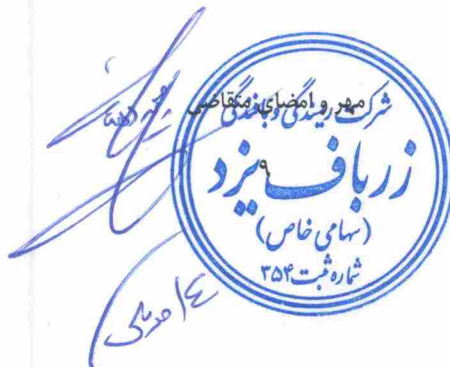 مهر و امضای متقاضی
شرکت ریسندگی و بافندگی
زرباف یزد
۹
(سهامی خاص)
شماره ثبت ۳۵۴